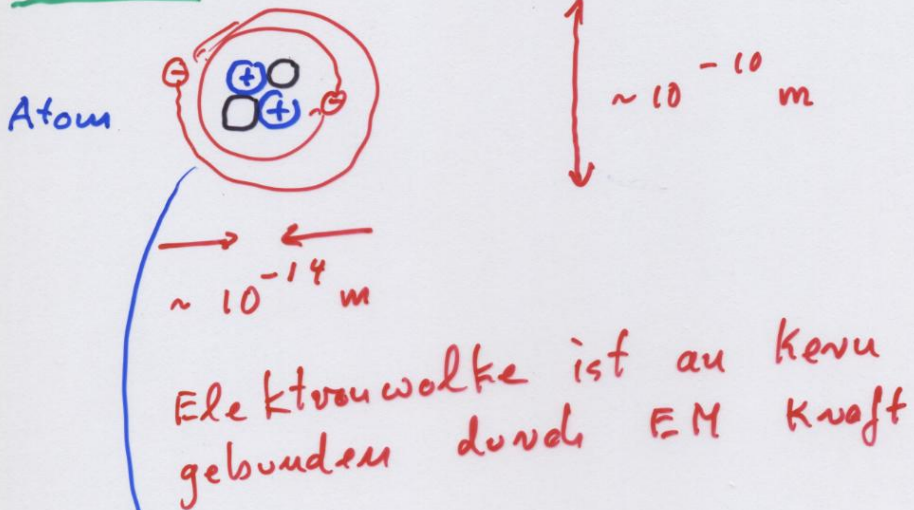 Atom
~ 10⁻¹⁰ m
~ 10⁻¹⁴ m
Elektronwolke ist an Kern
gebunden durch EM Kraft